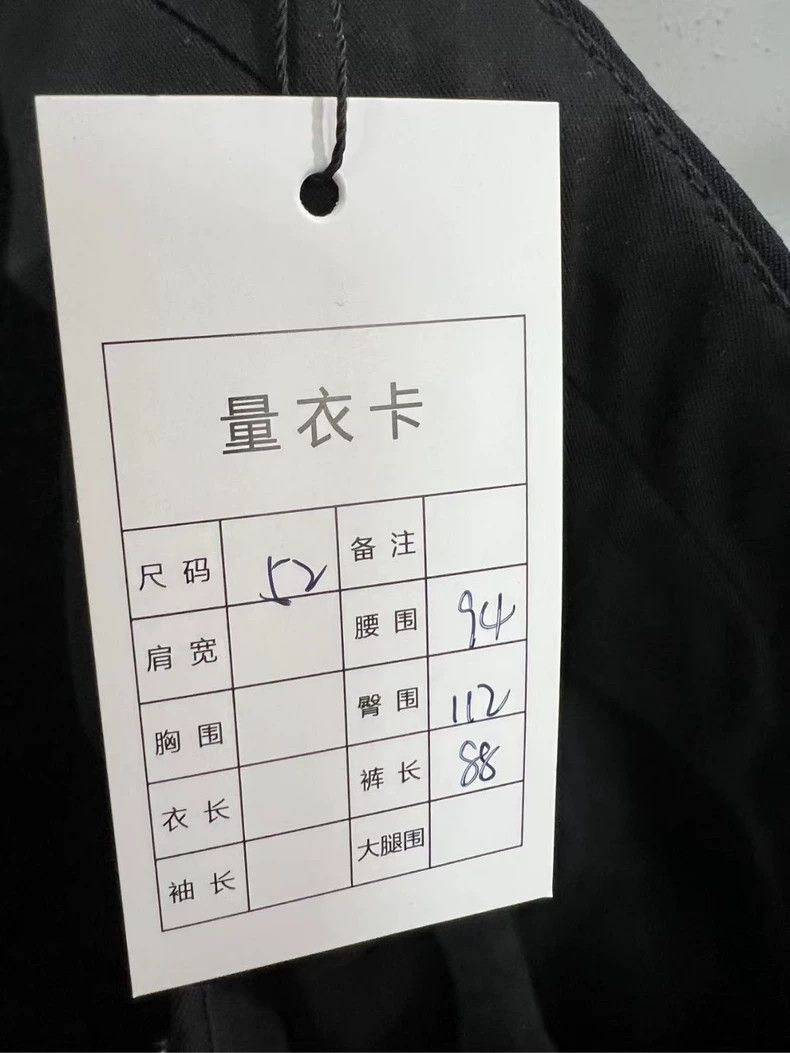 量衣卡
尺码 52 备注
肩宽 腰围 94
胸围 臀围 112
衣长 裤长 88
袖长 大腿围